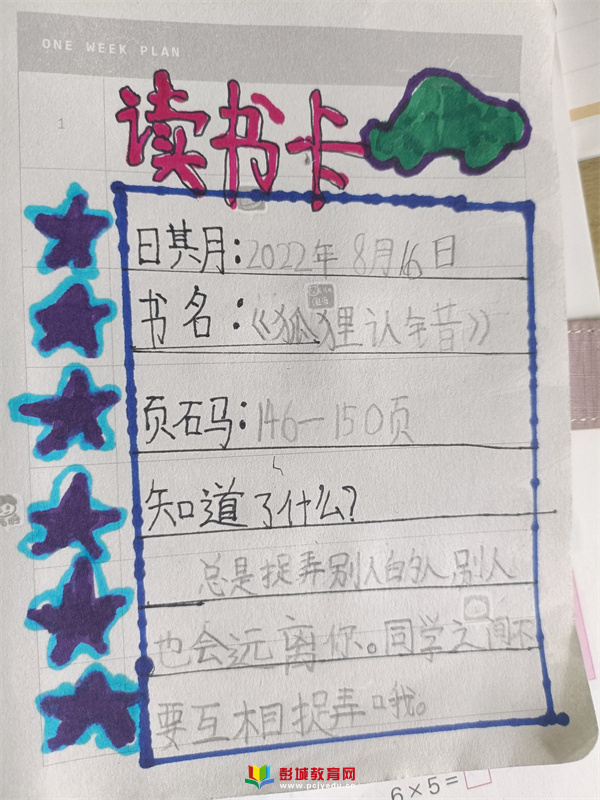 ONE WEEK PLAN
1
读书卡
日其月：2022年 8月16日
书名：《狐狸认错》
页码：146—150页
知道了什么？
总是捉弄别人的人，别人
也会远离你。同学之间不
要互相捉弄哦。
彭城教育网
www.pcjyedu.cn
6×5=